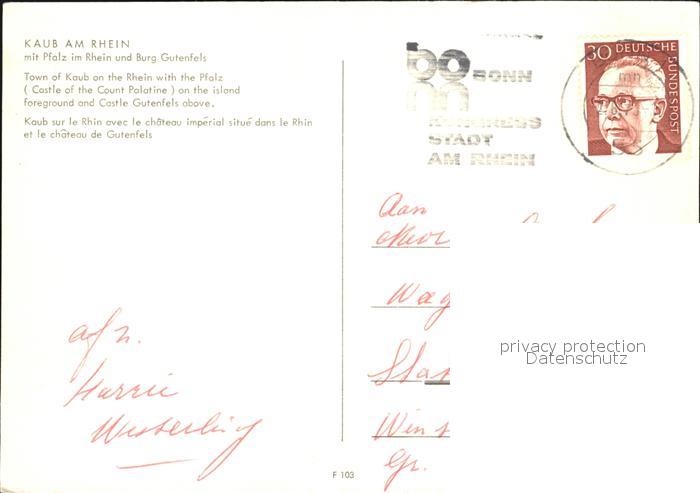 KAUB AM RHEIN
mit Pfalz im Rhein und Burg Gutenfels
Town of Kaub on the Rhein with the Pfalz
( Castle of the Count Palatine ) on the island
foreground and Castle Gutenfels above.
Kaub sur le Rhin avec le château impérial situé dans le Rhin
et le château de Gutenfels
bonn
BONN
KONGRESS
STADT
AM RHEIN
30 DEUTSCHE
BUNDESPOST
Aan
Wag
Wins
Gr.
privacy protection
Datenschutz
afz.
Harrie
Westerling
F 103